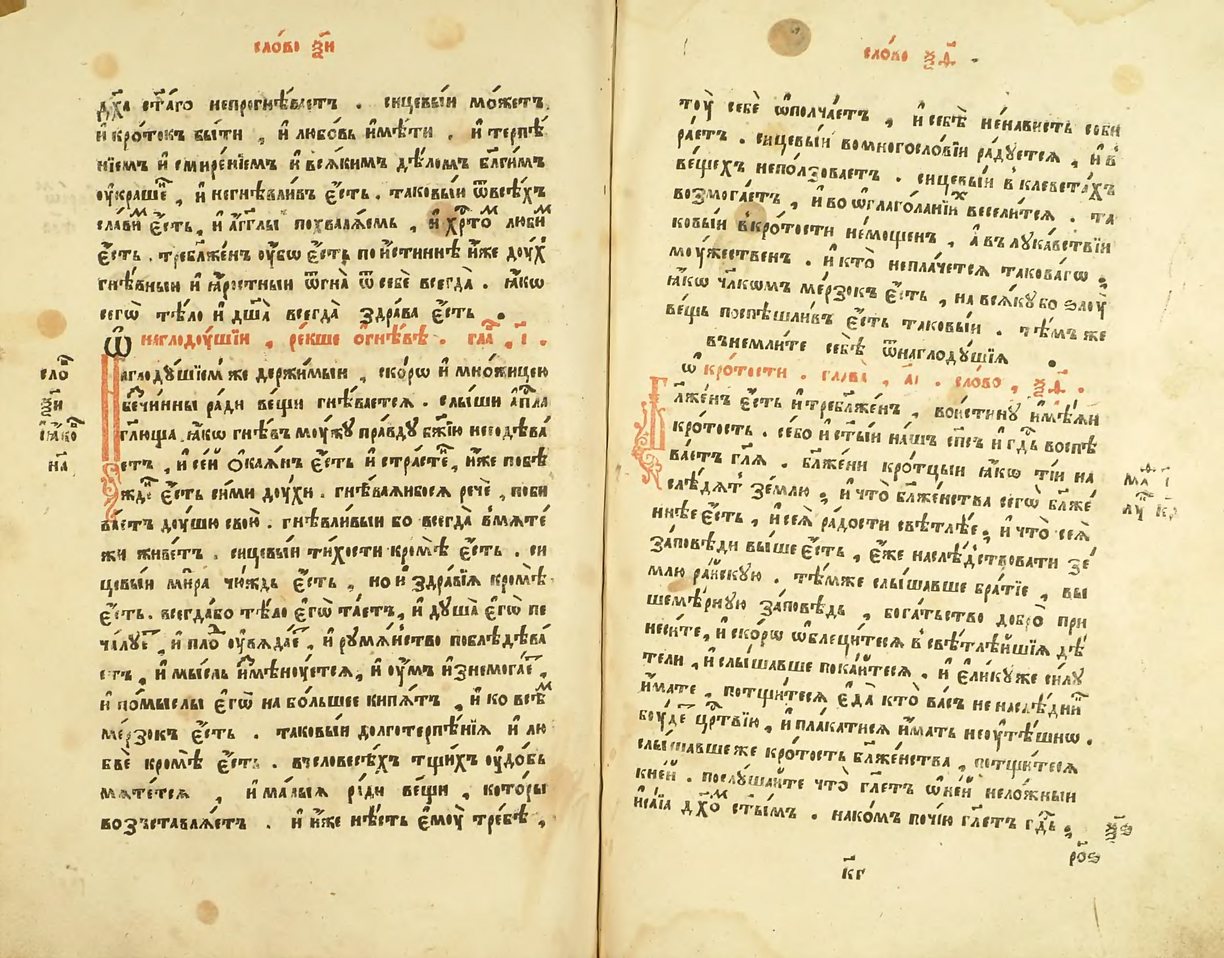 сло́во ѯ҃и
дх҃а ст҃а́го непрогнѣ́ваетъ . сицевы́и мо́жетъ
и҆ кро́токъ бы́ти , и҆ любо́вь и҆мѣ́ти . и҆ терпѣ́
нїемъ и҆ смире́нїемъ и҆ вся́кимъ дѣ́ломъ бл҃ги́мъ
оу҆краше́ , и҆ негнѣвли́въ є҆́сть . таковы́и ѿвсѣ́хъ
сла́вим є҆́сть , и҆ а҆́гг҃лы похваля́емь , и҆ хр҃то́м люби́м
є҆́сть . требл҃же́нъ оу҆́бѡ є҆́сть пои́стиннѣ и҆́же доу́х
гнѣ́вныи и҆ ꙗ҆́ростныи ѿгна̀ ѿ себѐ всегда̀ . ꙗ҆́кѡ
сегѡ̀ тѣ́ло и҆ дш҃а̀ всегда̀ здра́ва є҆́сть .
Ѡ наглодоу́шїи , ре́кше ѻ҆гнѣ́вѣ . гла҃ , і҃ .
сло́
ѯ҃и
і҆а́ко
на
Наглоду́шїем же держи́мыи , ско́рѡ и҆ мно́жицею
бечи́нны ра́ди ве́щи гнѣ́вается . слы́ши а҆п҃ла
гл҃юща . ꙗ҆́кѡ гнѣ́въ моу́жу пра́вду бж҃їю несодѣ́ва
етъ , и҆ се́й ѻ҆кая́нъ є҆́сть и҆ стра́сте , и҆́же побѣ
жде́ є҆́сть си́ми доу́хи . гнѣ́ваяйбося речѐ , поби
ва́етъ доу́ши свой . гнѣвли́выи бо всегда̀ вмяте́
жи живе́тъ . сицевы́и ти́хости кро́мѣ є҆́сть . си
цевы́и ми́ра чю́ждь є҆́сть , но и҆ здра́вїя кро́мѣ
є҆́сть . всегда́бо тѣ́ло є҆гѡ̀ та́етъ , и҆ душа̀ є҆гѡ̀ пе
ча́луе , и҆ пло́ оу҆вяда́е , и҆ румя́нство поблѣдѣва́
етъ , и҆ мы́сль и҆змѣнꙋ́ется , и҆ оу҆́мъ и҆знемога́е ,
и҆ по́мыслы є҆гѡ̀ на бо́льшее кипя́тъ , и҆ ко всѣ́м
ме́рзокъ є҆́сть . таковы́и долготерпѣ́нїя и҆ лю
бвѐ кро́мѣ є҆́сть . вчеловѣ́хъ тщи́хъ оу҆до́бь
мяте́тся , и҆ ма́лыя ра́ди ве́щи , которы
возъставля́етъ . и҆ и҆́же нѣ́сть є҆моу̀ тре́бѣ ,
сло́во ѯ҃ѳ .
тоу̀ себѐ ѡ҆полча́етъ , и҆ себѣ̀ не́нависть соби
ра́етъ . сицевы́и вомногосло́вїи ра́дуется , и҆ в
ве́щехъ неползова́етъ . сицевы́и в клевета́хъ
возмога́етъ , и҆ во ѡ҆глаго́ланїих весели́тся . та
ковы́и вкро́тости не́мощенъ , а҆ въ лука́вствїи
моу́жественъ . и҆ кто̀ непла́чется такова́гѡ ,
ꙗ҆́кѡ чл҃комъ ме́рзокъ є҆́сть , на вся́ку бо ѕлоу́
ве́щь поспѣ́шливъ є҆́сть таковы́и . тѣ́мъ же
вънемли́те себѣ̀ ѿнаглоду́шїя .
ѡ кро́тости . глава̀ , а҃і . сло́во , ѯ҃ѳ .
Бл҃же́нъ є҆́сть и҆ требл҃же́нъ , вои́стину и҆мѣ́яи
кро́тость . се́бо и҆ ст҃ы́и на́шъ сп҃съ и҆ гд҃ь воспѣ̀
ва́етъ гл҃я . бл҃же́ни кро́тцыи ꙗ҆́кѡ ті́и на
слѣ́дят зе́млю , и҆ что̀ бл҃же́нства сегѡ̀ бл҃же́
ннѣе є҆́сть , и҆ сея̀ ра́дости свѣтлѣ́е , и҆ что̀ сея̀
за́повѣди вы́ше є҆́сть , є҆́же наслѣ́дствовати зе́
млю ра́йскую . тѣ́мже слы́шавше бра́тїе , вы
шемѣ́рную за́повѣдь , бога́тьство добро̀ при
неси́те , и҆ ско́рѡ ѡ҆блеци́теся в свѣтлѣ́йшїя дѣ́
тели , и҆ слы́шавше пока́йтеся . и҆ є҆ли́кꙋже си́лу
и҆́мате , потщи́теся є҆да̀ кто̀ ва́съ не наслѣ́дни
боу́де цр҃твїю , и҆ пла́катися и҆́мать неоутѣ́шнѡ .
слы́шавше же кро́тость бл҃же́нства , потщи́теся
кне́й . послу́шайте что̀ гл҃етъ ѡне́й нело́жныи
и҆са́їа дх҃о́м ст҃ы́мъ . нако́мъ почі́ю гл҃етъ гд҃ь ,
ѯ҃ѕ
рѻѕ
к҃г